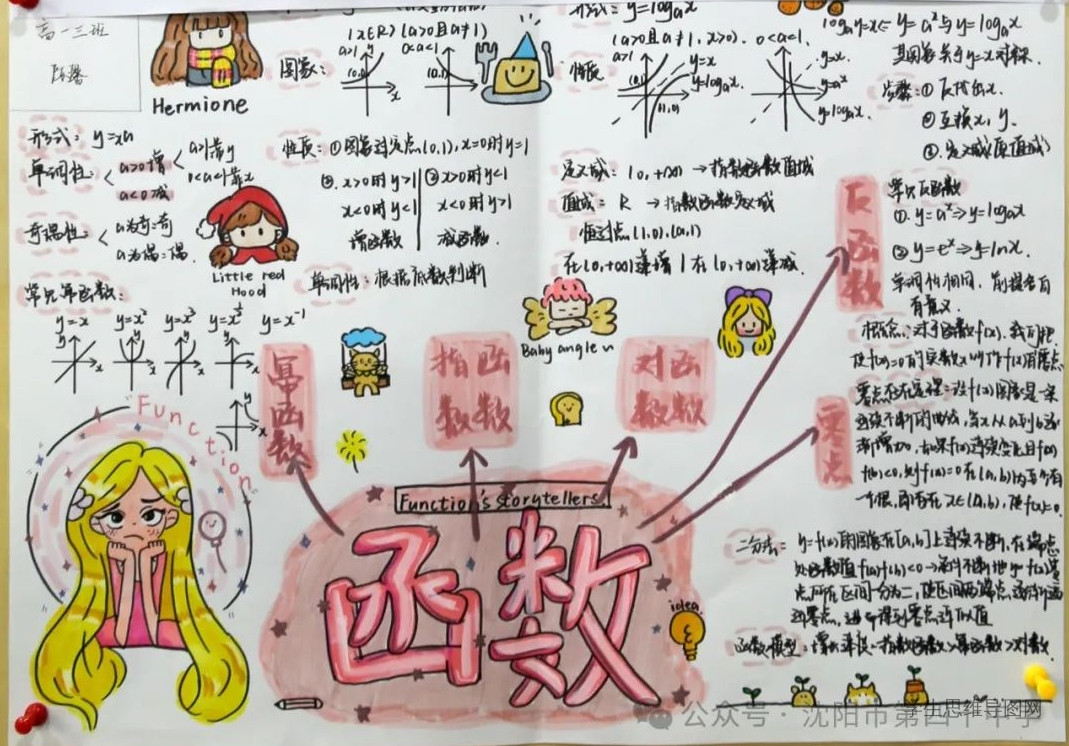 高一三班
Hermione
形式：y=xα
单调性：
α>0增
α<0减
α>1靠y
0<α<1靠x
奇偶性：
α为奇：奇
α为偶：偶
Little red
Hood
常见幂函数：
y=x
y=x²
y=x³
y=x^½
y=x⁻¹
幂函数
Function
(x∈R) (a>0且a≠1)
图象：
a>1
0<a<1
性质：①图象过定点(0,1), x=0时y=1
②. x>0时y>1
x<0时y<1
增函数
②x>0时y<1
x<0时y>1
减函数
单调性：根据底数判断
指函数数
形式：y=logax
(a>0且a≠1, x>0).
0<a<1.
a>1
性质
y=x
y=logax.
(1,0)
y=x.
y=ax
y=logax.
定义域：(0,+∞) → 指数函数值域
值域：R → 指数函数定义域
恒过点(1,0).(a,1)
在(0,+∞)递增 | 在(0,+∞)递减.
Baby angle
对函数数
logay=x
y=aˣ与y=logax
其图象关于y=x对称.
步骤：①反求出x.
②互换x, y.
③. 定义域(原值域)
反函数
常见反函数
①. y=aˣ⇒y=logax
②y=eˣ⇒y=lnx.
单调性相同，前提各自
有意义.
概念：对于函数f(x).我们把
使f(x)=0的实数x叫作f(x)的零点
零点
零点存在定理：设f(x)图象是一条
连续不断的曲线，当x从a到b逐
渐增加，如果f(x)连续变化且f(a)
f(b)<0, 则f(x)=0在(a,b)内至少有
一个根，即存在x∈(a,b), 使f(x)=0.
二分法：y=f(x)的图象在[a,b]上连续不断，在端点
处函数值f(a)f(b)<0→通过不断地把y=f(x)零
点所在区间一分为二，使区间两端点逐渐逼
近零点，进而得到零点近似值
函数模型：增长速度：指数函数>幂函数>对数
Function's storytellers.
函数
idea.
公众号·沈阳市第四十中学
学生思维导图网